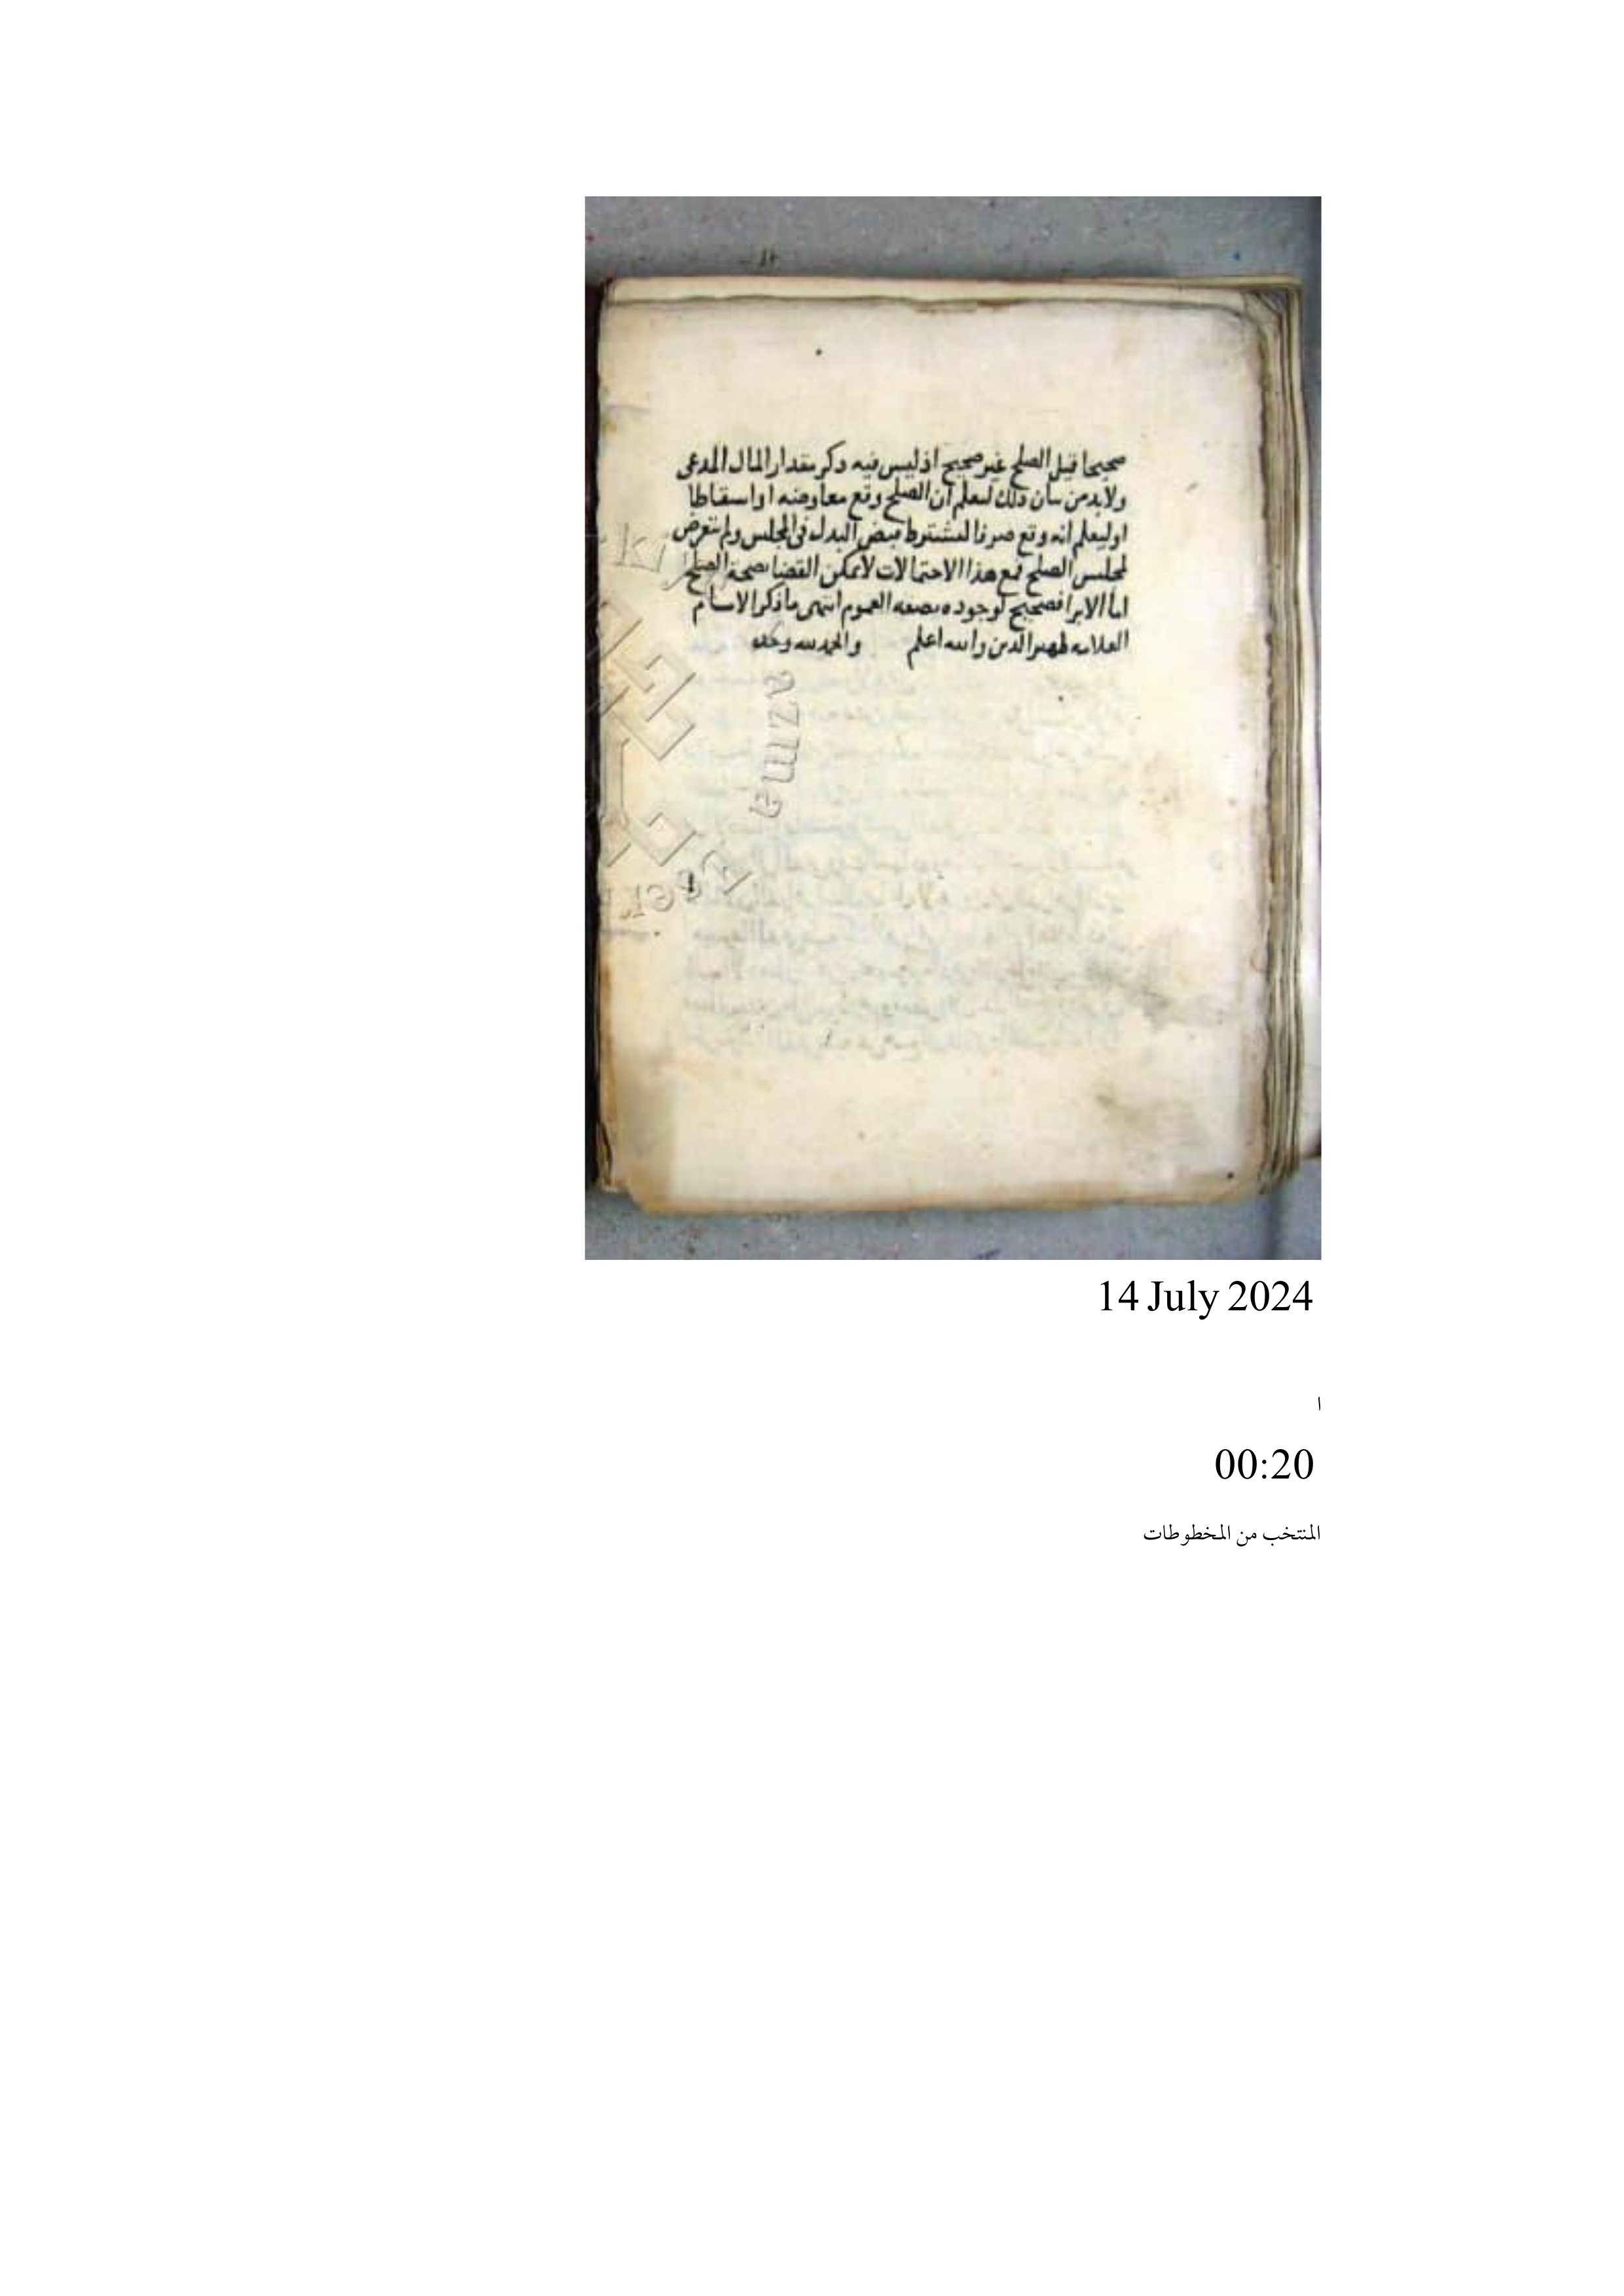 صحيحا قيل الصلح غير صحيح اذ ليس فيه ذكر مقدار المال المدعى
ولا بد من بيان ذلك ليعلم ان الصلح وقع معاوضه او اسقاطا
او ليعلم انه وقع صرفا ليشترط قبض البدل في المجلس ولم يتعرض
لمجلس الصلح فمع هذا الاحتمالات لا يمكن القضا بصحة الصلح
اما الابرا فصحيح لوجوده بصفه العموم انتهى ما ذكر الامام
العلامه ظهير الدين والله اعلم والحمد لله وحده
azma
14 July 2024
ا
00:20
المنتخب من المخطوطات